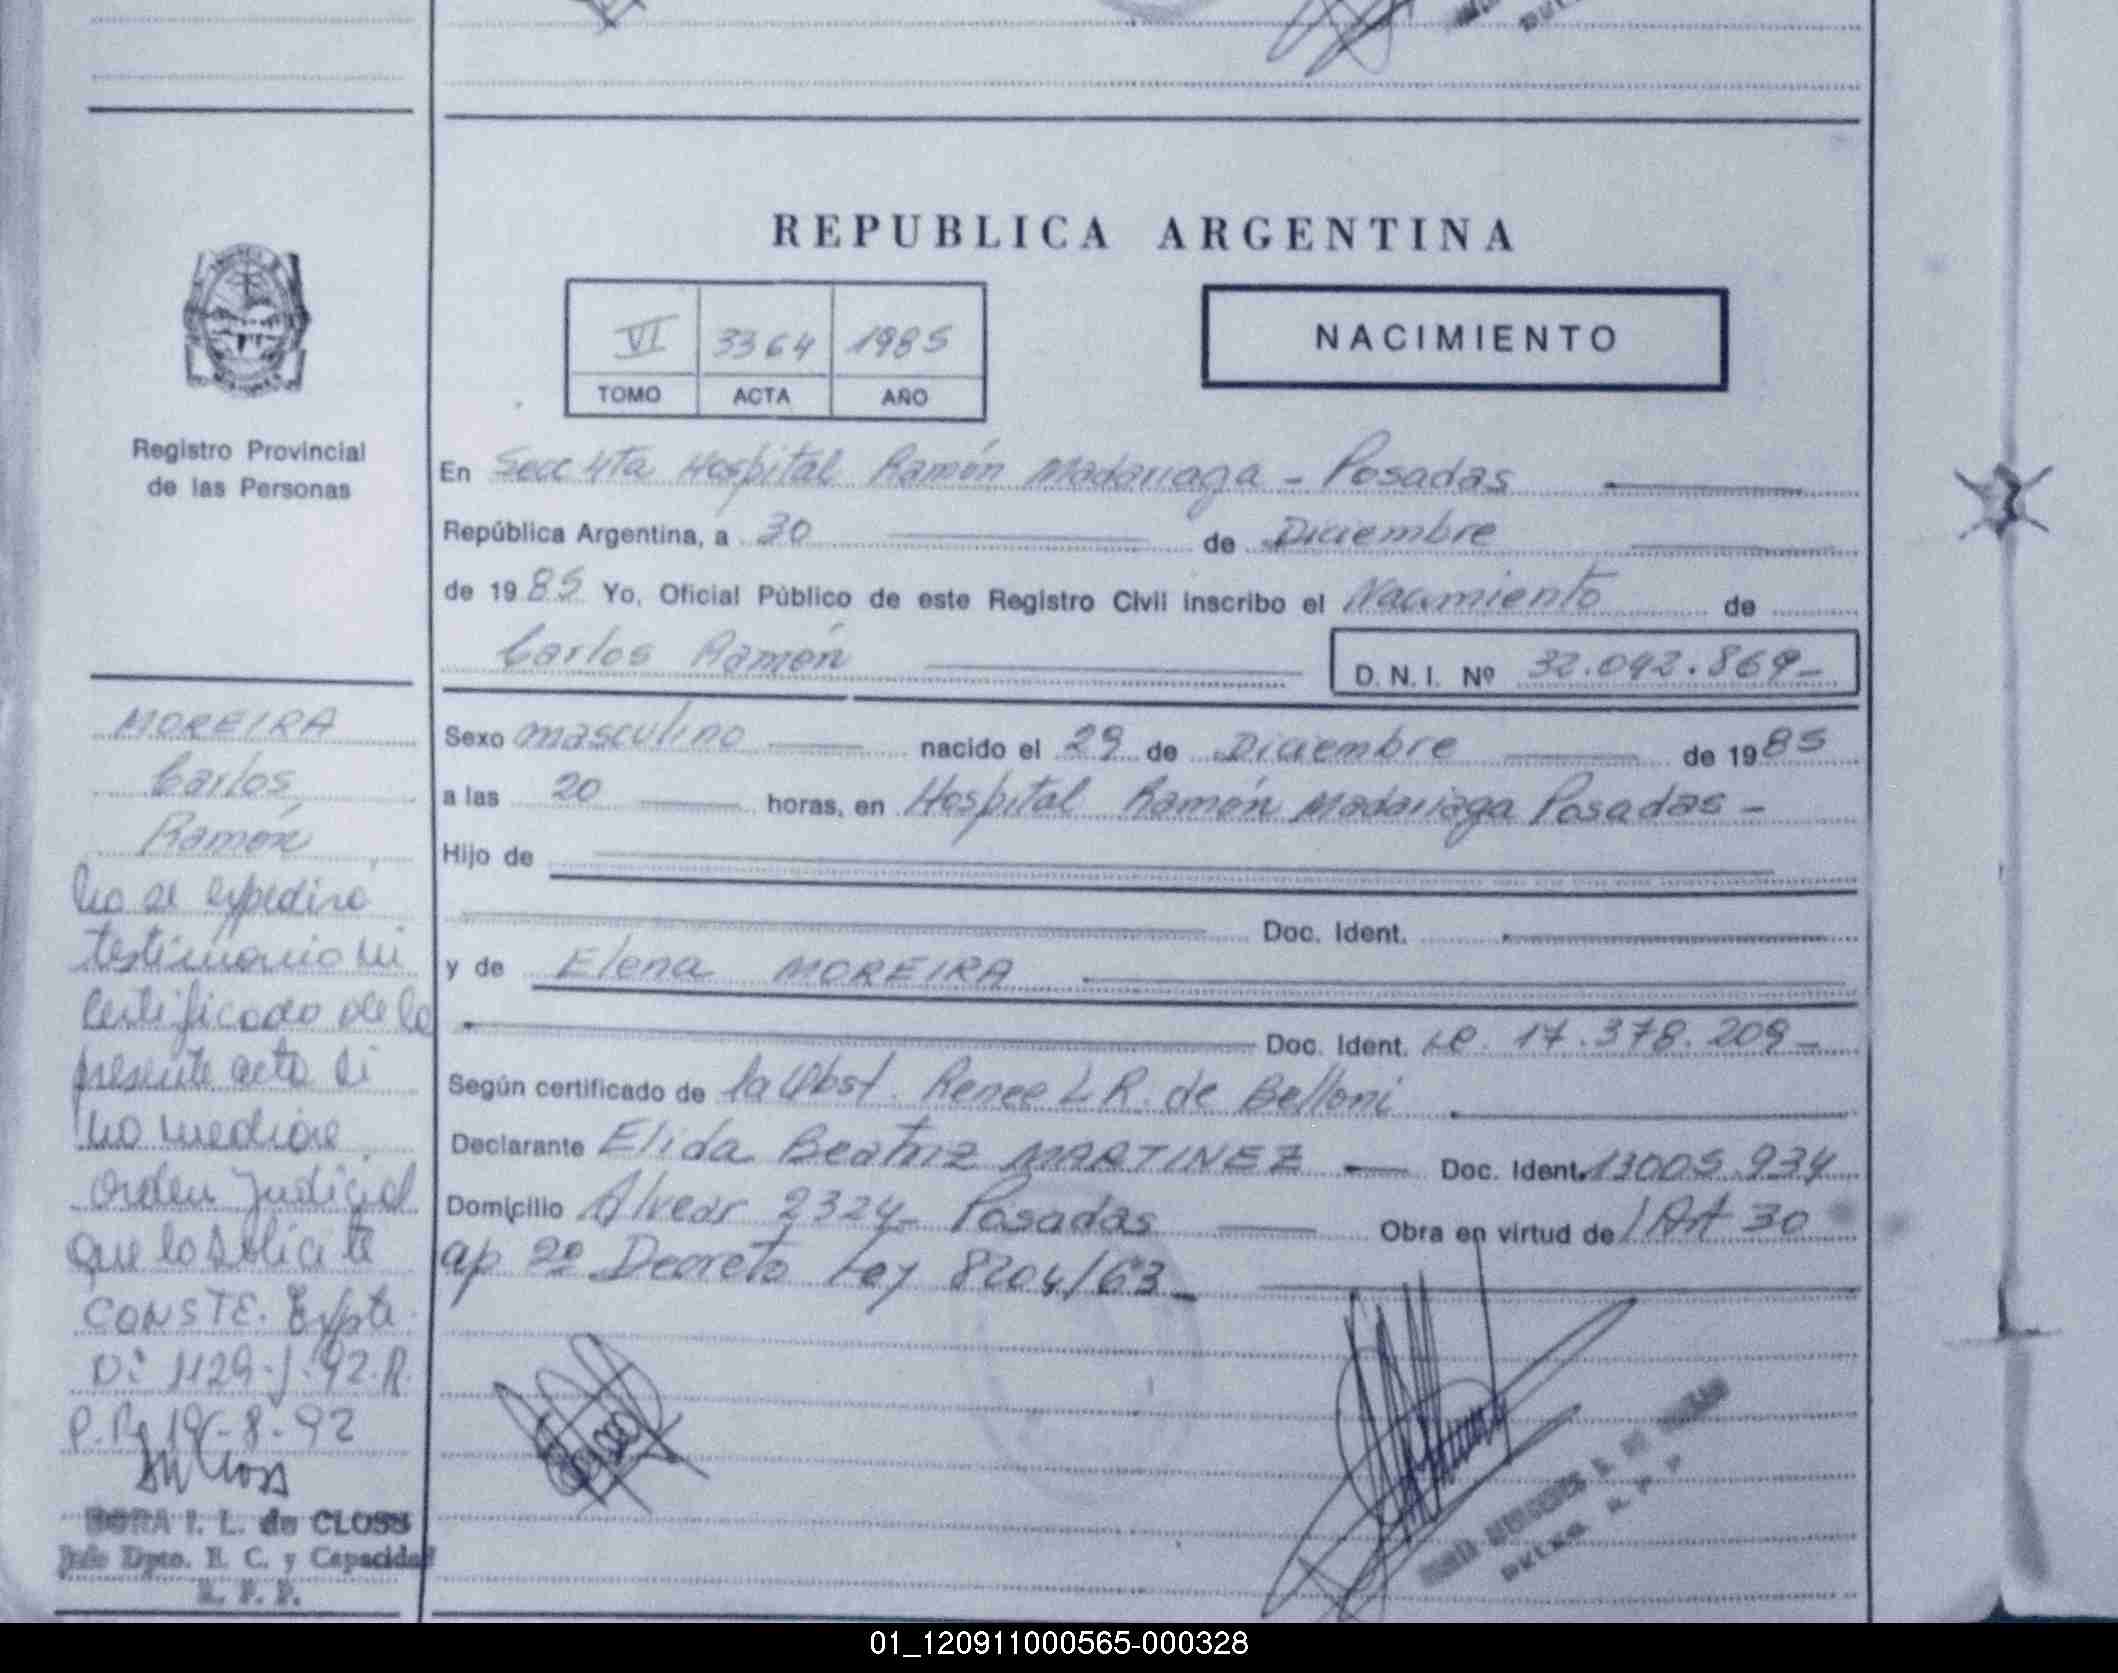 REPUBLICA ARGENTINA
VI 3364 1985
TOMO ACTA AÑO
NACIMIENTO
Registro Provincial
de las Personas
MOREIRA
Carlos,
Ramón
No se expedirá
testimonio ni
certificado de la
presente acta si
no mediare
orden judicial
que lo solicite
CONSTE. Expte.
1129-J-92.R.
P.P. -8-92
DORA I. L. de CLOSS
Jefe Dpto. E. C. y Capacidad
R. P. P.
En Secc 4ta Hospital Ramón Madariaga - Posadas
República Argentina, a 30 de Diciembre
de 1985 Yo, Oficial Público de este Registro Civil inscribo el Nacimiento de
Carlos Ramón D. N. I. Nº 32.042.869-
Sexo masculino nacido el 29 de Diciembre de 1985
a las 20 horas, en Hospital Ramón Madariaga Posadas -
Hijo de
Doc. Ident.
y de Elena MOREIRA
Doc. Ident. 17.378.209-
Según certificado de la Obst. Renee L R. de Belloni
Declarante Elida Beatriz MARTINEZ Doc. Ident. 13005.934
Domicilio Alvear 2324- Posadas Obra en virtud de / Art 30
ap 2º Decreto Ley 8204/63-
01_120911000565-000328